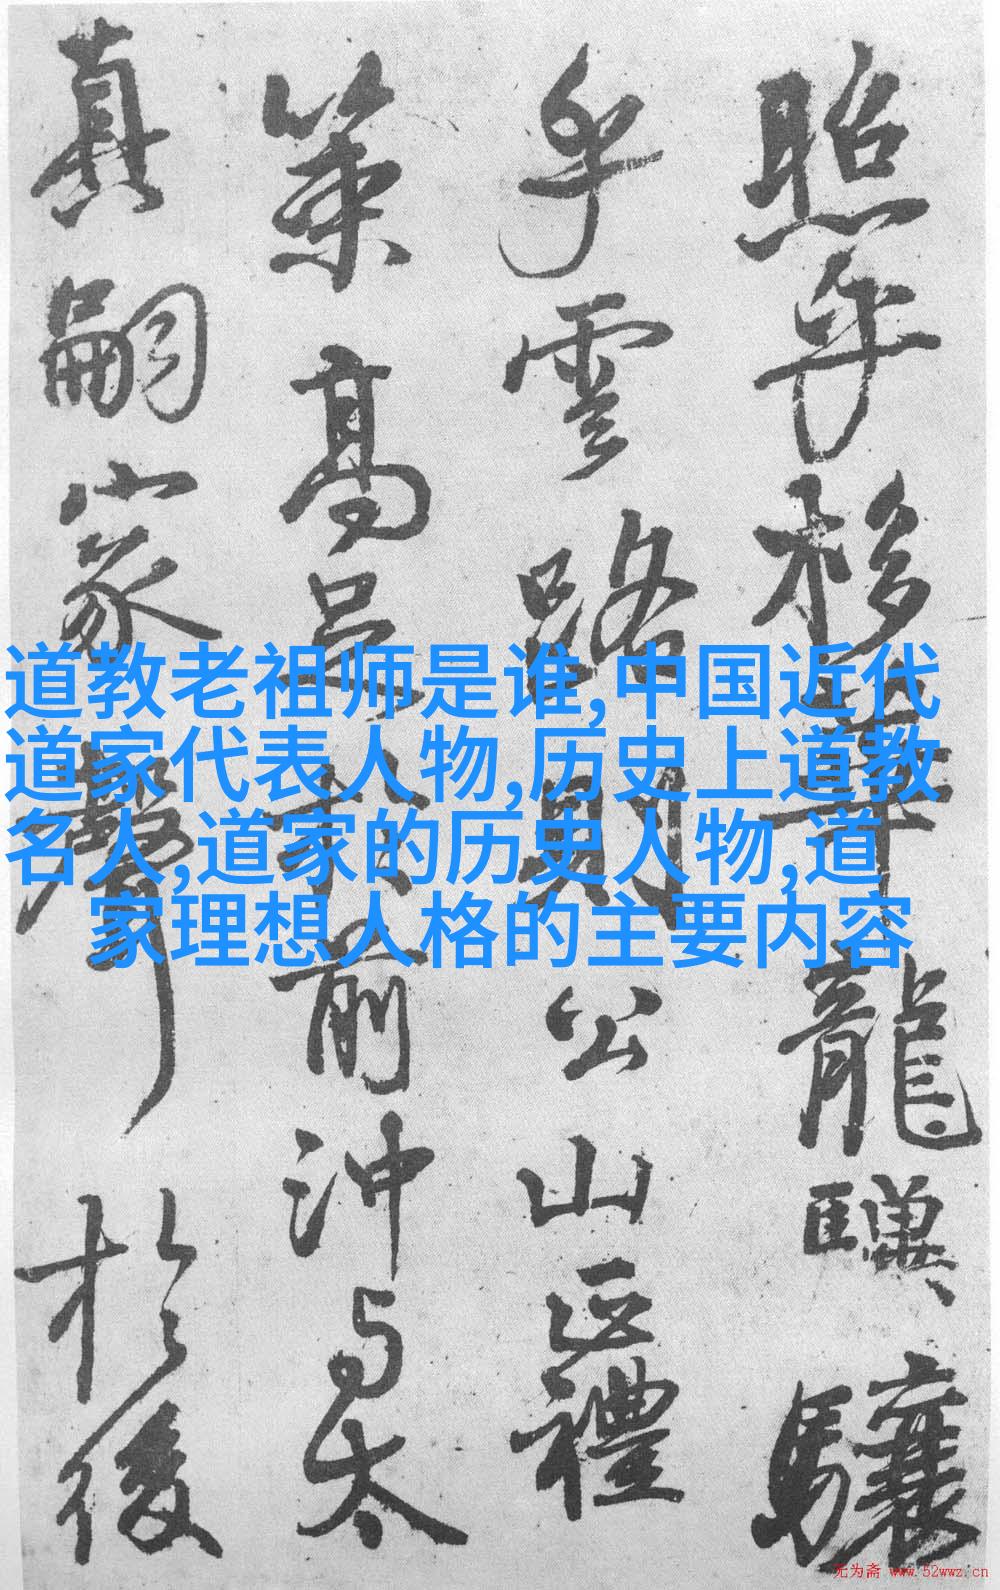 照乎栘華龍驥驤
乎雲路則公山正禮
策高足於前沖与太
真嗣家聲於後
道教老祖师是谁,中国近代
道家代表人物,历史上道教
名人,道家的历史人物,道
家理想人格的主要内容
无为斋 www.52wwz.cn